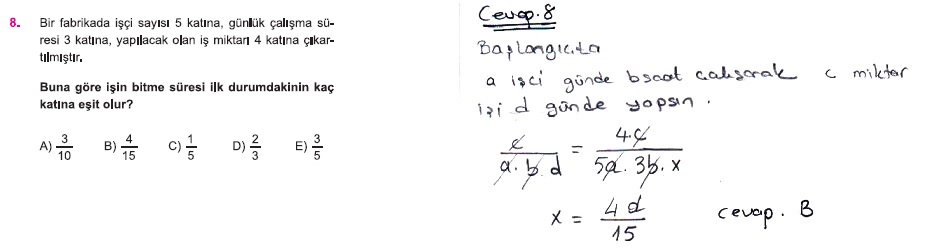 8. Bir fabrikada işçi sayısı 5 katına, günlük çalışma sü-
resi 3 katına, yapılacak olan iş miktarı 4 katına çıkar-
tılmıştır.
Buna göre işin bitme süresi ilk durumdakinin kaç
katına eşit olur?
A) 3/10 B) 4/15 C) 1/5 D) 2/3 E) 3/5
Cevap.8
Başlangıçta
a işçi günde b saat çalışarak c miktar
işi d günde yapsın.
c/(a.b.d) = 4.c/(5a.3b.x)
x = 4d/15 cevap. B